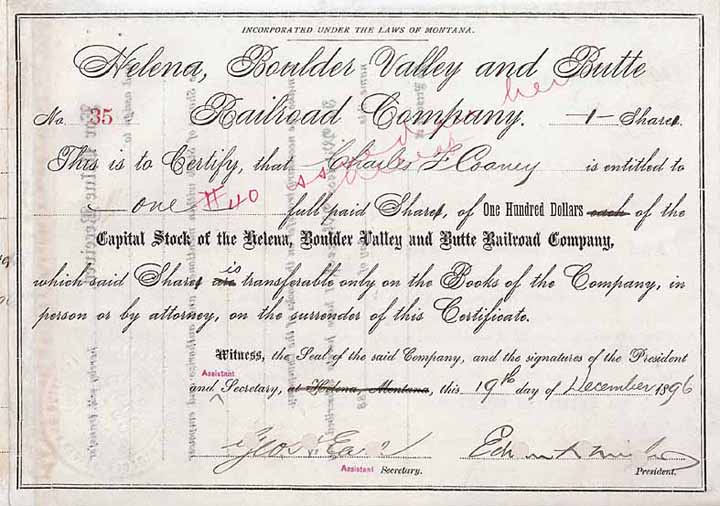 INCORPORATED UNDER THE LAWS OF MONTANA.
Helena, Boulder Valley and Butte
No. 35 Railroad Company. 1 Share
This is to Certify, that Charles F Cooney is entitled to
one #40 full paid Share, of One Hundred Dollars each of the
Capital Stock of the Helena, Boulder Valley and Butte Railroad Company,
which said Share are is transferable only on the Books of the Company, in
person or by attorney, on the surrender of this Certificate.
Witness, the Seal of the said Company, and the signatures of the President
Assistant
and Secretary, at Helena, Montana, this 19th day of December 1896
Assistant Secretary. President.